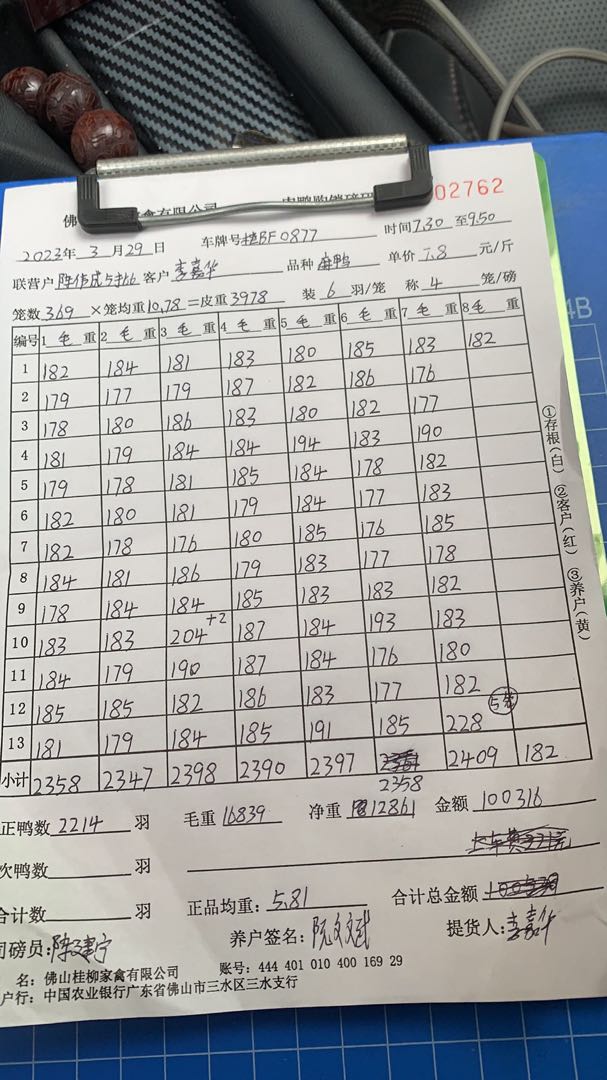 佛 禽有限公司 02762
2023年 3 月 29 日 车牌号桂BF0877 时间7.30 至9.50
联营户 客户 李嘉华 品种 麻鸭 单价 7.8 元/斤
笼数 369 ×笼均重 10.78 =皮重 3978 装 6 羽/笼 称 4 笼/磅
编号 1 毛 重 2 毛 重 3 毛 重 4 毛 重 5 毛 重 6 毛 重 7 毛 重 8 毛 重
1 182 184 181 183 180 185 183 182
2 179 177 179 187 182 186 176
3 178 180 186 183 180 182 177
4 181 179 184 184 194 183 190
5 179 178 181 185 184 178 182
6 182 180 181 179 184 177 183
7 182 178 176 180 185 176 185
8 184 181 186 179 183 177 178
9 178 184 184 185 183 183 182
10 183 183 204 +2 187 184 193 183
11 184 179 190 187 184 176 180
12 185 185 182 186 183 177 182
13 181 179 184 185 191 185 228 5笼
小计 2358 2347 2398 2390 2397 2358 2409 182
①存根(白) ②客户(红) ③养户(黄)
正鸭数 2214 羽 毛重 16839 净重 12861 金额 100316
次鸭数 羽
合计数 羽 正品均重: 5.81 合计总金额
司磅员: 养户签名: 提货人: 李嘉华
名: 佛山桂柳家禽有限公司 账号: 444 401 010 400 169 29
户行: 中国农业银行广东省佛山市三水区三水支行